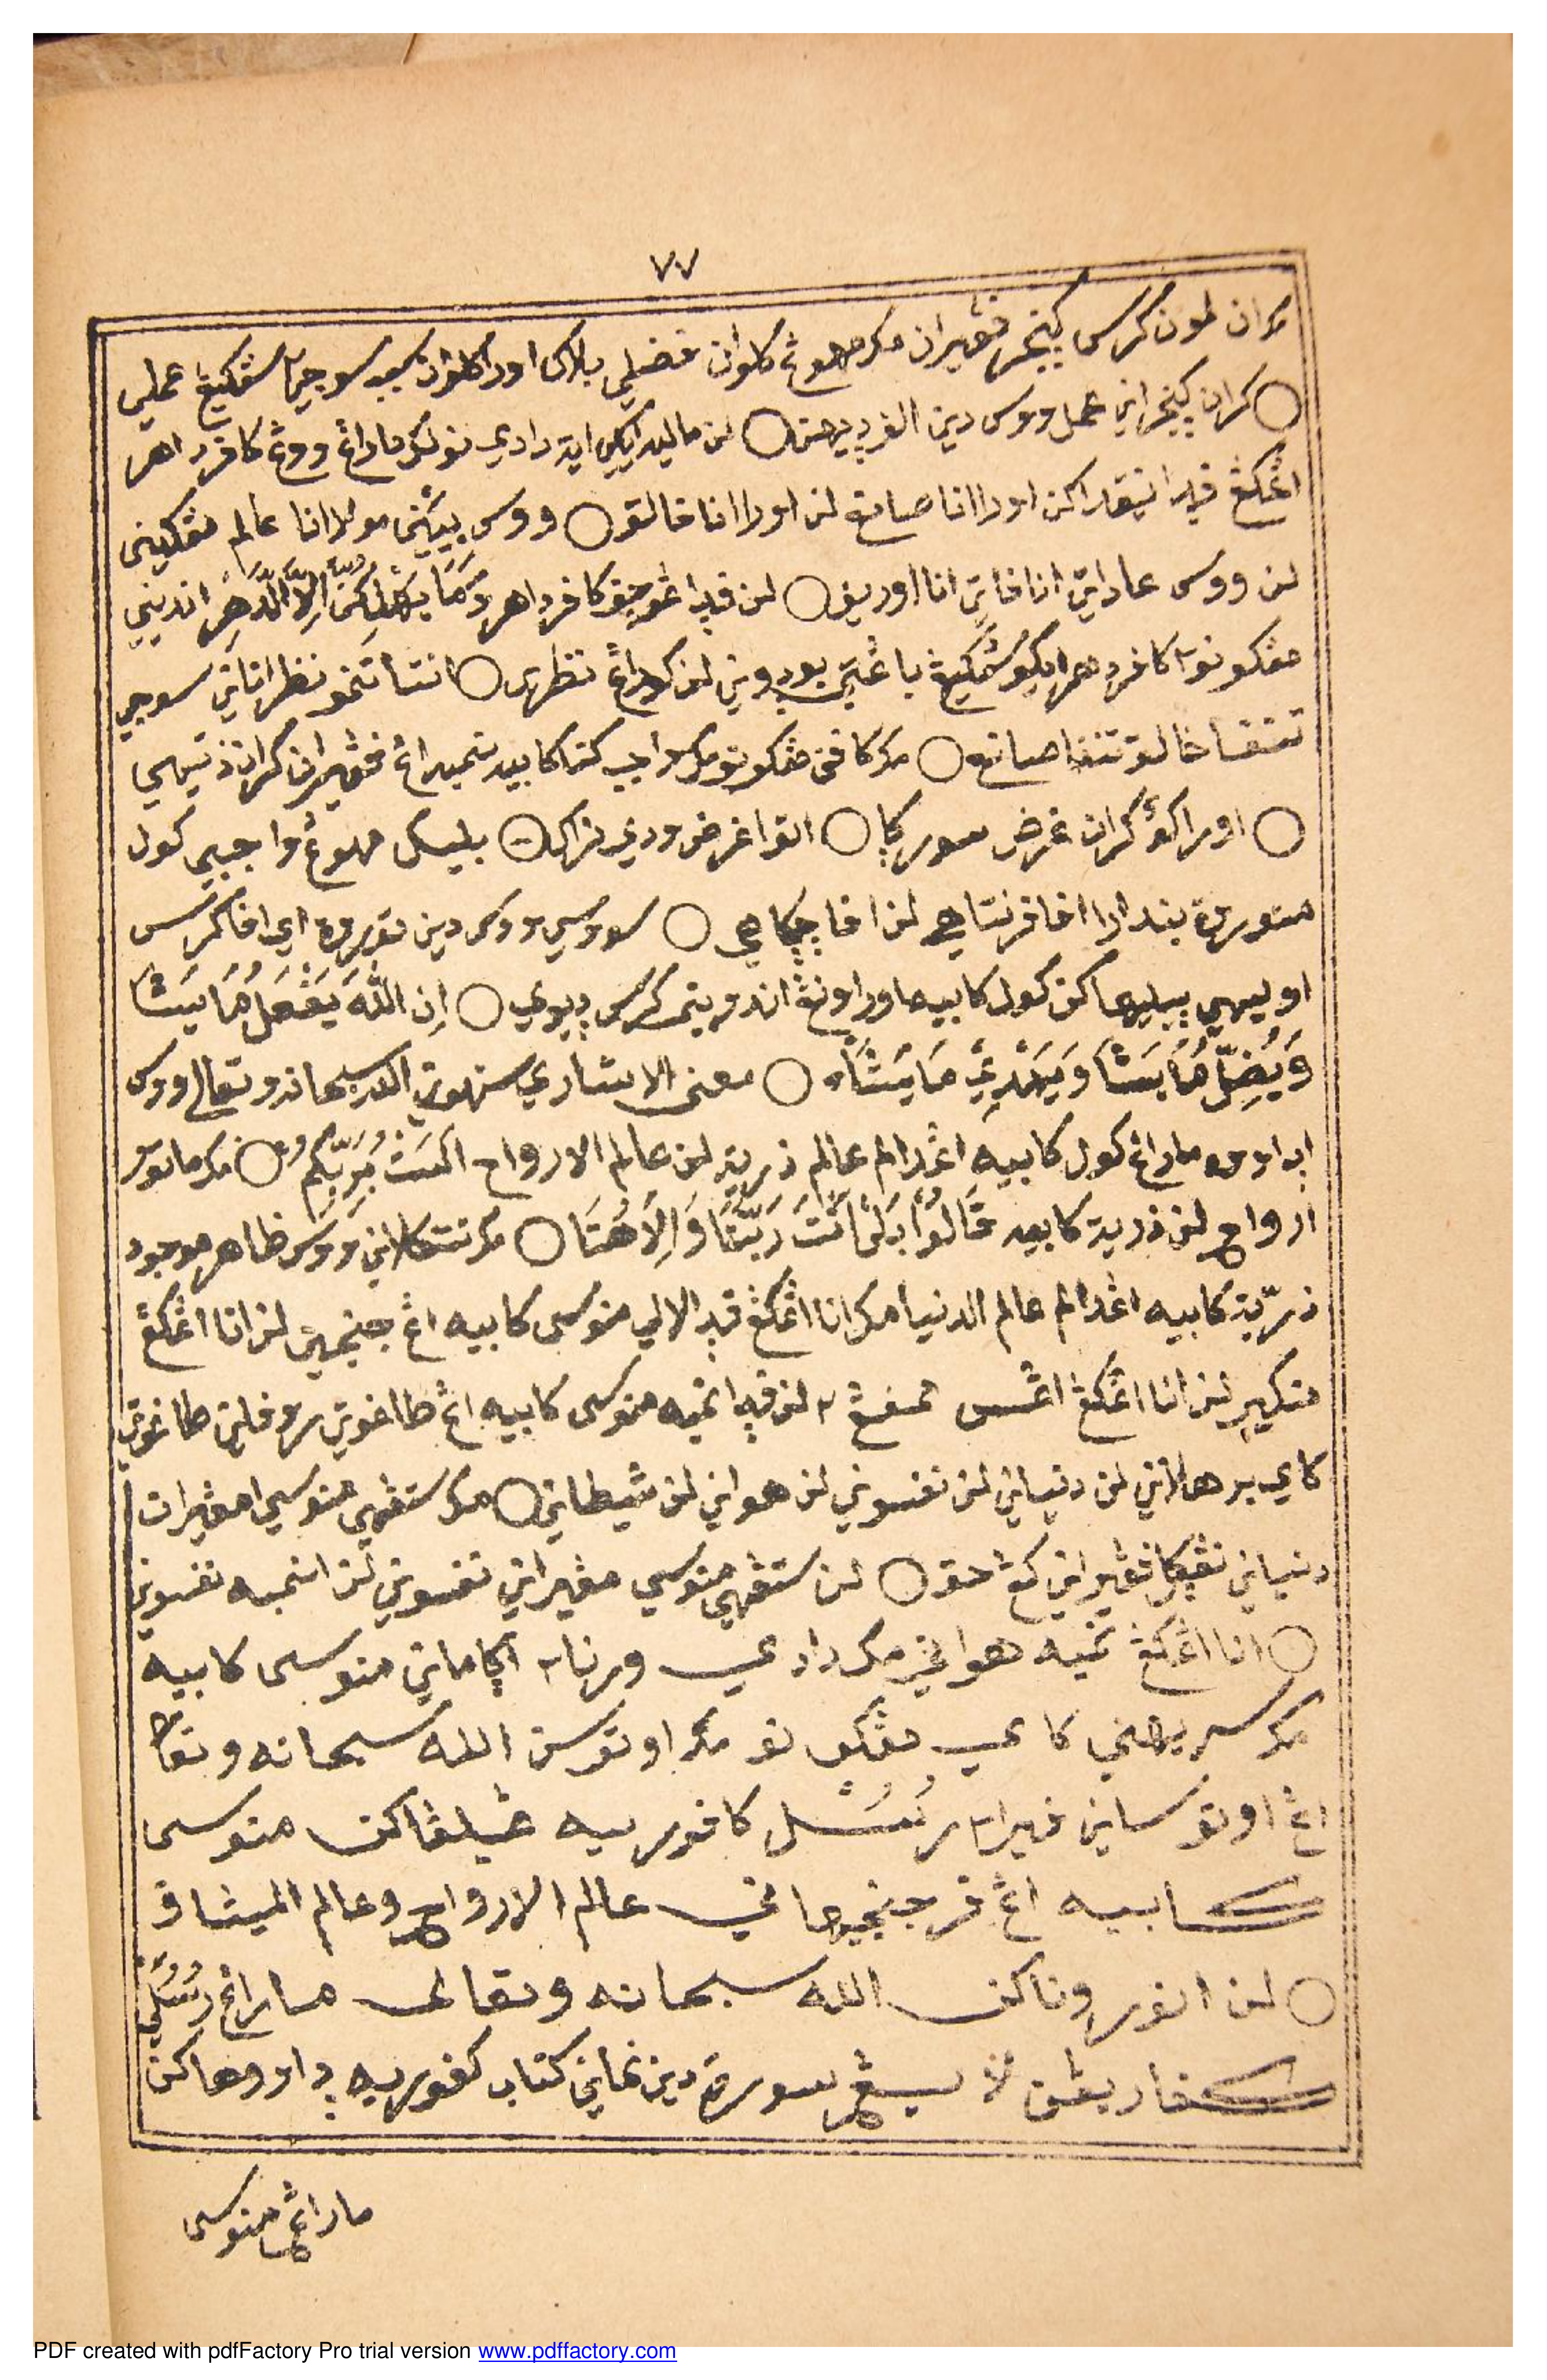 ٧٧
مران لمون كرس كنجر فڠيران مك مهوڠ كلوان فضلي بلاك اورا كلوان سبب سوجي٢ سڠكيڠ عملي
○ كران كنجراني عمل ووس دين الفرديهن ○ لن ماليه ايكي اية دادي نولك ماراڠ ووڠ كافر داهر
اڠكڠ فدا نيقداكن اورا انا صانع لن اورا انا خالق ○ ووس بيڠني مولا انا عالم مڠكيني
لن ووس عاداتي انا فاتي انا اوريف ○ لن فدا ڠوجف كافر داهر وَمَا يُهْلِكُنَا إِلَّا الدَّهْرُ انديني
مڠكونو٢ كافر دهر ايكو سڠكيڠ باڠتي بودوني لن كوراڠ نظري ○ انتا تمو نظر اناني سوجي
تنفا خالق تنفا صانع ○ مك كافن مڠكونو مك واجب كتا كابيه نمبه اڠ فڠيران كران ذاتيهي
○ اورا كو كران غرض سوركا ○ اتوا غرض ودي نراك ○ بليك مهوڠ واجبي كول
متوروة بندارا افا فرنتاهي لن افا چكاهي ○ سووسي ووس دين توروة اي افا كرس
اوليهي بيليهاكن كول كابيه اورا ونڠ اندويني كرس ديوي ○ اِن اللهَ يَفْعَلُ مَا يَشَا
وَيُضِلُّ مَا يَشَا وَيَهْدِيْ مَا يَشَآء ○ معنى الاشاري ستهوني الله سبحانه وتعالى ووس
انداووه ماراڠ كول كابيه اڠدالم عالم ذرية لن عالم الارواح اَلَسْتُ بِرَبِّكُمْ ○ مك ماتور
ارواح لن ذرية كابيه قَالُوْا بَلَى اَنْتَ رَبُّنَا وَاِلَاهُنَا ○ مك نتكلاني ووس ظاهر موجود
ذرّية كابيه اڠدالم عالم الدنيا مك انا اڠكڠ فدا لالي منوسى كابيه اڠ جنجيهي لن انا اڠكڠ
منكير لن انا اڠكڠ اڠس تمفڠ٢ لن فدا نمبه منوسى كابيه اڠ طاغوتي روفاني طاغوتي
كاي برهلاني لن دنياني لن نفسوني لن هواني لن شيطاني ○ مك ستڠهي منوسي امڠيران
دنياني نڠڬل فڠيراني كڠ حق ○ لن ستڠهي منوسي مڠيراني نفسوني لن انمبه نفسوني
○ انا اڠكڠ نمبه هواني مك دادي ورنا٢ اڬاماني منوسى كابيه
مك سريهني كاي مڠكونو مك اوتوس الله سبحانه وتعالى
اڠ اوتوساني فيرا٢ رُسُل كافوريه ڠيليڠاكن منوسى
كابيه اڠ فرجنجيهاني عالم الارواح وعالم الميثاق
○ لن انوروناكن الله سبحانه وتعالى ماراڠ رُسُلِي
سورة دين نماني كتاب كفوريه داووهاكن
ماراڠ منوسى
PDF created with pdfFactory Pro trial version www.pdffactory.com